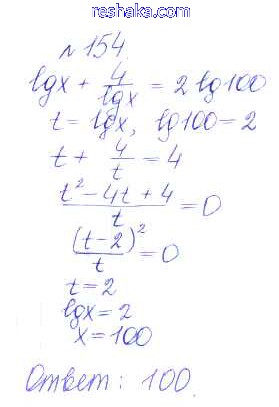 reshaka.com
№154
lgx + 4/lgx = 2lg100
t = lgx, lg100=2
t + 4/t = 4
(t²-4t+4)/t = 0
(t-2)²/t = 0
t=2
lgx=2
x=100
Ответ: 100